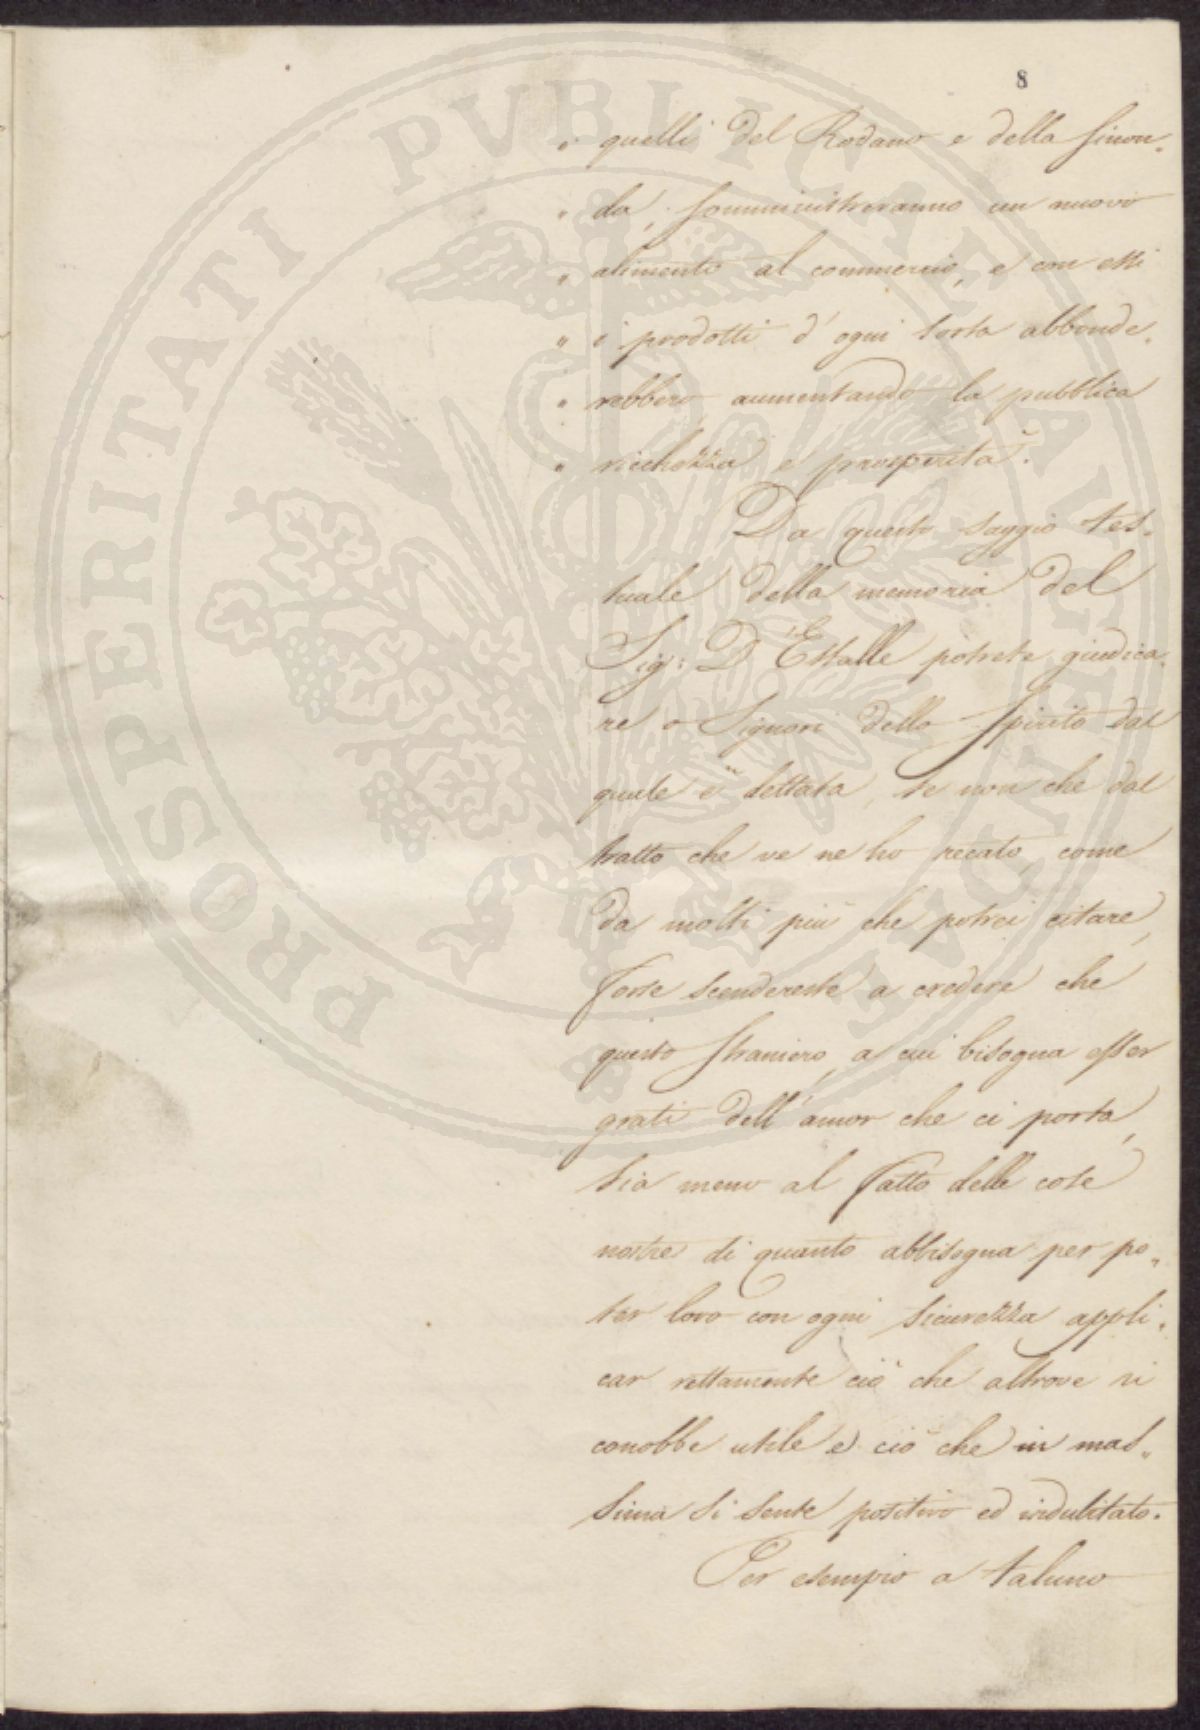 8
" quelli del Rodano e della Giron„
" da, somministreranno un nuovo
" alimento al commercio, e con essi
" i prodotti d'ogni sorta abbonde„
" rebbero aumentando la pubblica
" ricchezza e prosperità.
Da questo saggio tes„
tuale della memoria del
Sig: D'Estalle potrete giudica„
re o Signori dello spirito dal
quale è dettata, se non che dal
tratto che ve ne ho recato, come
da molti più che potrei citare,
forse scendereste a credere che
questo straniero, a cui bisogna esser
grati dell'amor che ci porta,
sia meno al fatto delle cose
nostre di quanto abbisogna per po„
ter loro con ogni sicurezza appli„
car rettamente ciò che altrove si
conobbe utile e ciò che in mas„
sima si sente positivo ed indubitato.
Per esempio a taluno
PROSPERITATI PVBLICAE AVGENDAE